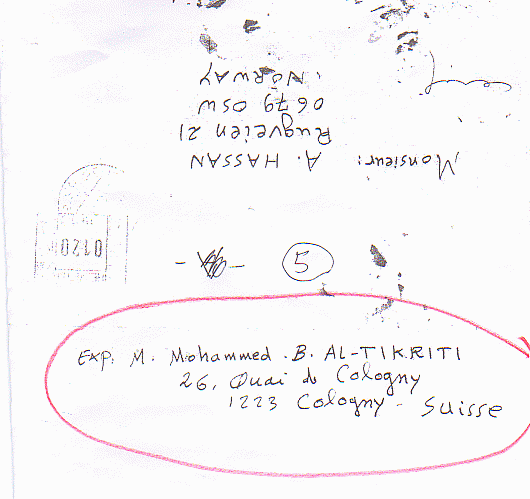 Monsieur: A. HASSAN
Rugveien 21
0679 OSLO
NORWAY
5
Exp. M. Mohammed .B. AL-TIKRITI
26, Quai de Cologny
1223 Cologny - Suisse